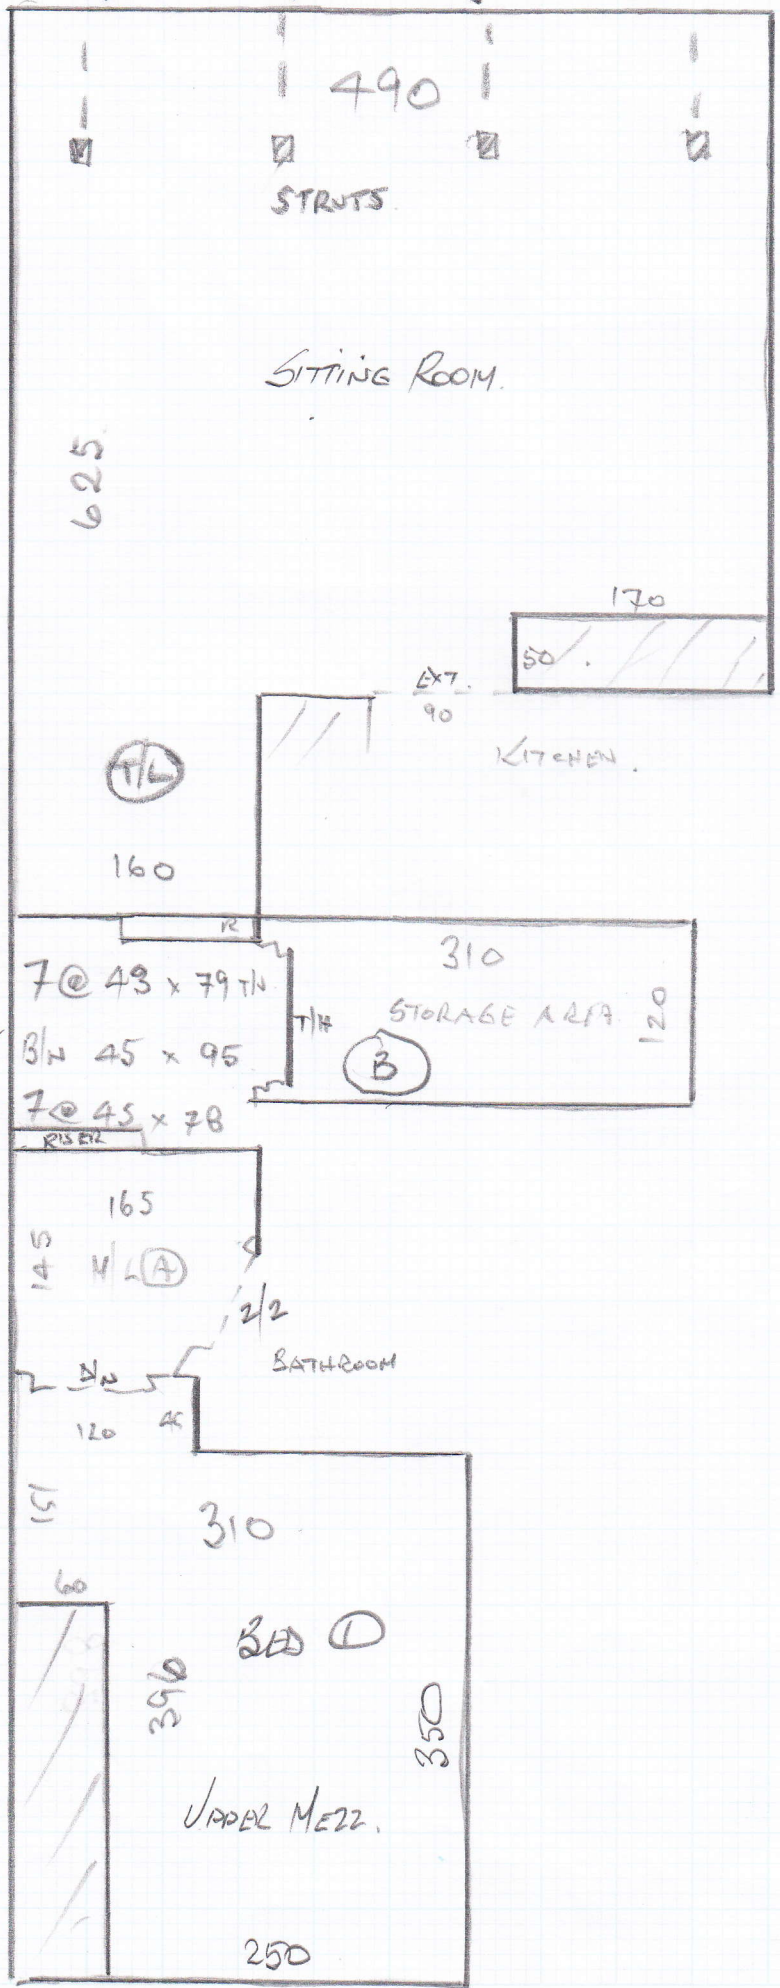 490
STRUTS
SITTING ROOM.
625
170
50
EXT.
90
KITCHEN.
T/L
160
R
310
7@ 43 x 79 T/N
STORAGE AREA
120
T/H
B/N 45 x 95
B
7@ 45 x 78
RISER
165
145
M/L A
2/2
BATHROOM
D/N
120
151
310
60
BED 1
396
350
UPPER MEZZ.
250